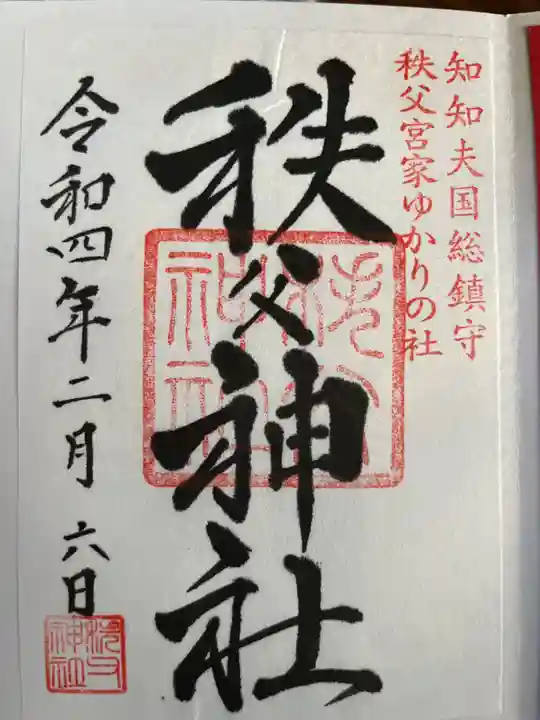 知知夫国総鎮守
秩父宮家ゆかりの社
秩父神社
秩父神社
令和四年二月六日
秩父神社